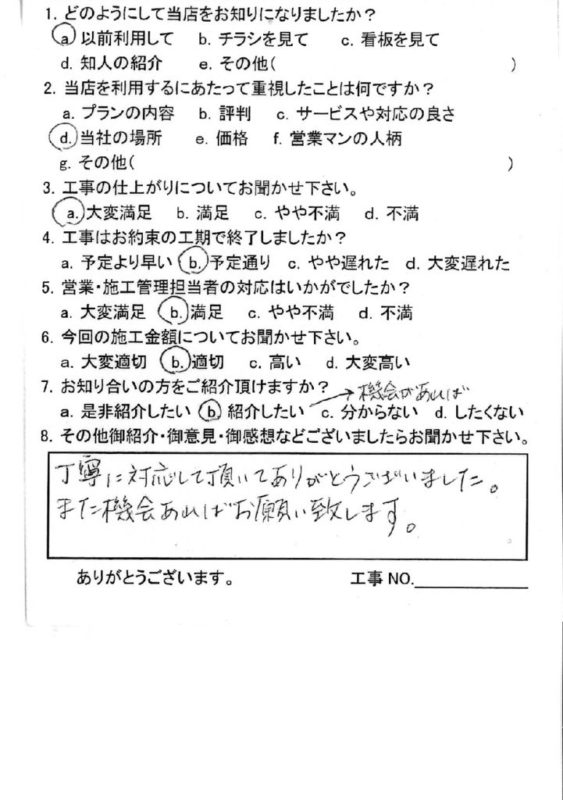 1. どのようにして当店をお知りになりましたか？
a. 以前利用して　b. チラシを見て　c. 看板を見て
d. 知人の紹介　e. その他(　)
2. 当店を利用するにあたって重視したことは何ですか？
a. プランの内容　b. 評判　c. サービスや対応の良さ
d. 当社の場所　e. 価格　f. 営業マンの人柄
g. その他(　)
3. 工事の仕上がりについてお聞かせ下さい。
a. 大変満足　b. 満足　c. やや不満　d. 不満
4. 工事はお約束の工期で終了しましたか？
a. 予定より早い　b. 予定通り　c. やや遅れた　d. 大変遅れた
5. 営業・施工管理担当者の対応はいかがでしたか？
a. 大変満足　b. 満足　c. やや不満　d. 不満
6. 今回の施工金額についてお聞かせ下さい。
a. 大変適切　b. 適切　c. 高い　d. 大変高い
7. お知り合いの方をご紹介頂けますか？
→機会があれば
a. 是非紹介したい　b. 紹介したい　c. 分からない　d. したくない
8. その他御紹介・御意見・御感想などございましたらお聞かせ下さい。
丁寧に対応して頂いてありがとうございました。
また機会あればお願い致します。
ありがとうございます。　工事 NO.